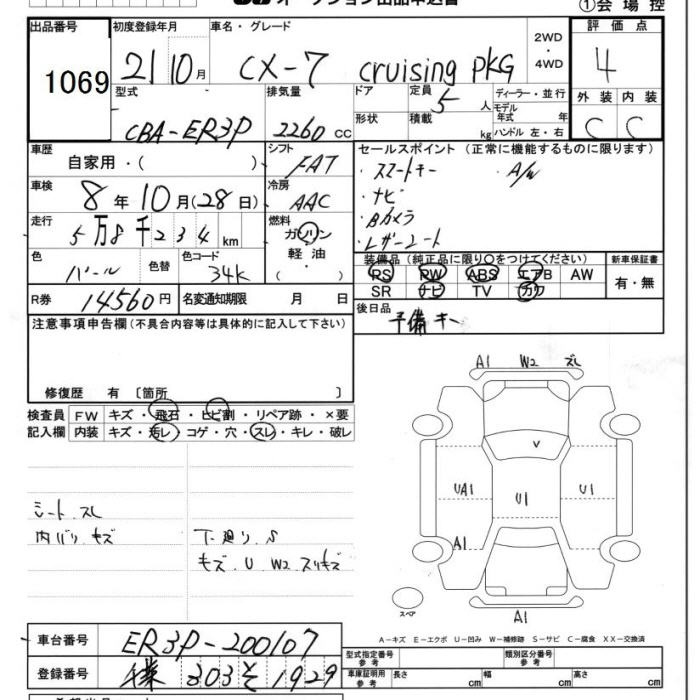 オークション出品申込書
①会場控
出品番号 1069
初度登録年月 21 10月
車名・グレード CX-7 cruising PKG
2WD・4WD
評価点 4
型式 CBA-ER3P
排気量 2260 cc
ドア 形状
定員 5人 積載 kg
ディーラー・並行 モデル年式 年 ハンドル 左・右
外装 C 内装 C
車歴 自家用・( )
シフト FAT
セールスポイント (正常に機能するものに限ります)
・スマートキー ・A/W
・ナビ
・Bカメラ
・レザーシート
車検 8年10月(28日)
冷房 AAC
走行 5万8千234km
燃料 ガソリン・軽油・( )
色 パール 色替 色コード 34K
装備品 (純正品に限り○をつけてください)
RS PW ABS エアB AW
SR ナビ TV カワ
新車保証書 有・無
R券 14560円 名変通知期限 月 日
後日品 予備キー
注意事項申告欄 (不具合内容等は具体的に記入して下さい)
修復歴 有 〔箇所 〕
検査員 FW キズ・飛石・ヒビ割・リペア跡・×要
記入欄 内装 キズ・汚レ・コゲ・穴・スレ・キレ・破レ
シート スレ
内バリ キズ
下廻り S
キズ U W2 スリキズ
A1 W2 スレ
V
UA1 U1 U1
A1
スペア
A1
A－キズ E－エクボ U－凹み W－補修跡 S－サビ C－腐食 XX－交換済
車台番号 ER3P-200107
登録番号 303 そ 1929
型式指定番号 参考 類別区分番号 参考
車庫証明用 参考 長さ cm 幅 cm 高さ cm